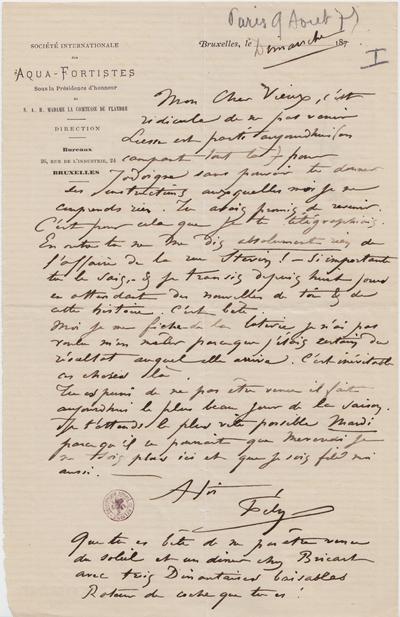 Paris 9 Aout 75
I
SOCIÉTÉ INTERNATIONALE
DES
AQUA-FORTISTES
Sous la Présidence d'honneur
DE
S. A. R. MADAME LA COMTESSE DE FLANDRE
DIRECTION
Bureaux
26, RUE DE L'INDUSTRIE, 24
BRUXELLES
Bruxelles, le Dimanche 187
Mon Cher Vieux, c'est
ridicule de ne pas venir
est parti aujourdhui
tout le pour
Jodoigne sans pouvoir te donner
les instructions auxquelles moi je ne
comprends rien. Tu avais promis de revenir.
C'est pour cela que je te télégraphiais
En outre tu ne me dis absolument rien de
l'affaire de la rue ! – Si importante
tu le sais, & je transis depuis huit jours
en attendant des nouvelles de toi & de
cette histoire. C'est bête.
Moi je me fiche de la loterie je n'ai pas
voulu m'en mêler parceque j'étais certain du
résultat auquel elle arrive. C'est inévitable
ces choses là.
Tu es puni de ne pas être venu il fait
aujourdhui le plus beau jour de la saison.
Je t'attends le plus vite possible Mardi
parcequ'il se pourrait que Mercredi je
ne sois plus ici et que je sois filé moi
aussi.
A toi
Fély
Que tu es bête de ne pas être venu
du soleil et un diner chez Bricart
avec trois Dinantaises baisables
de que tu es !